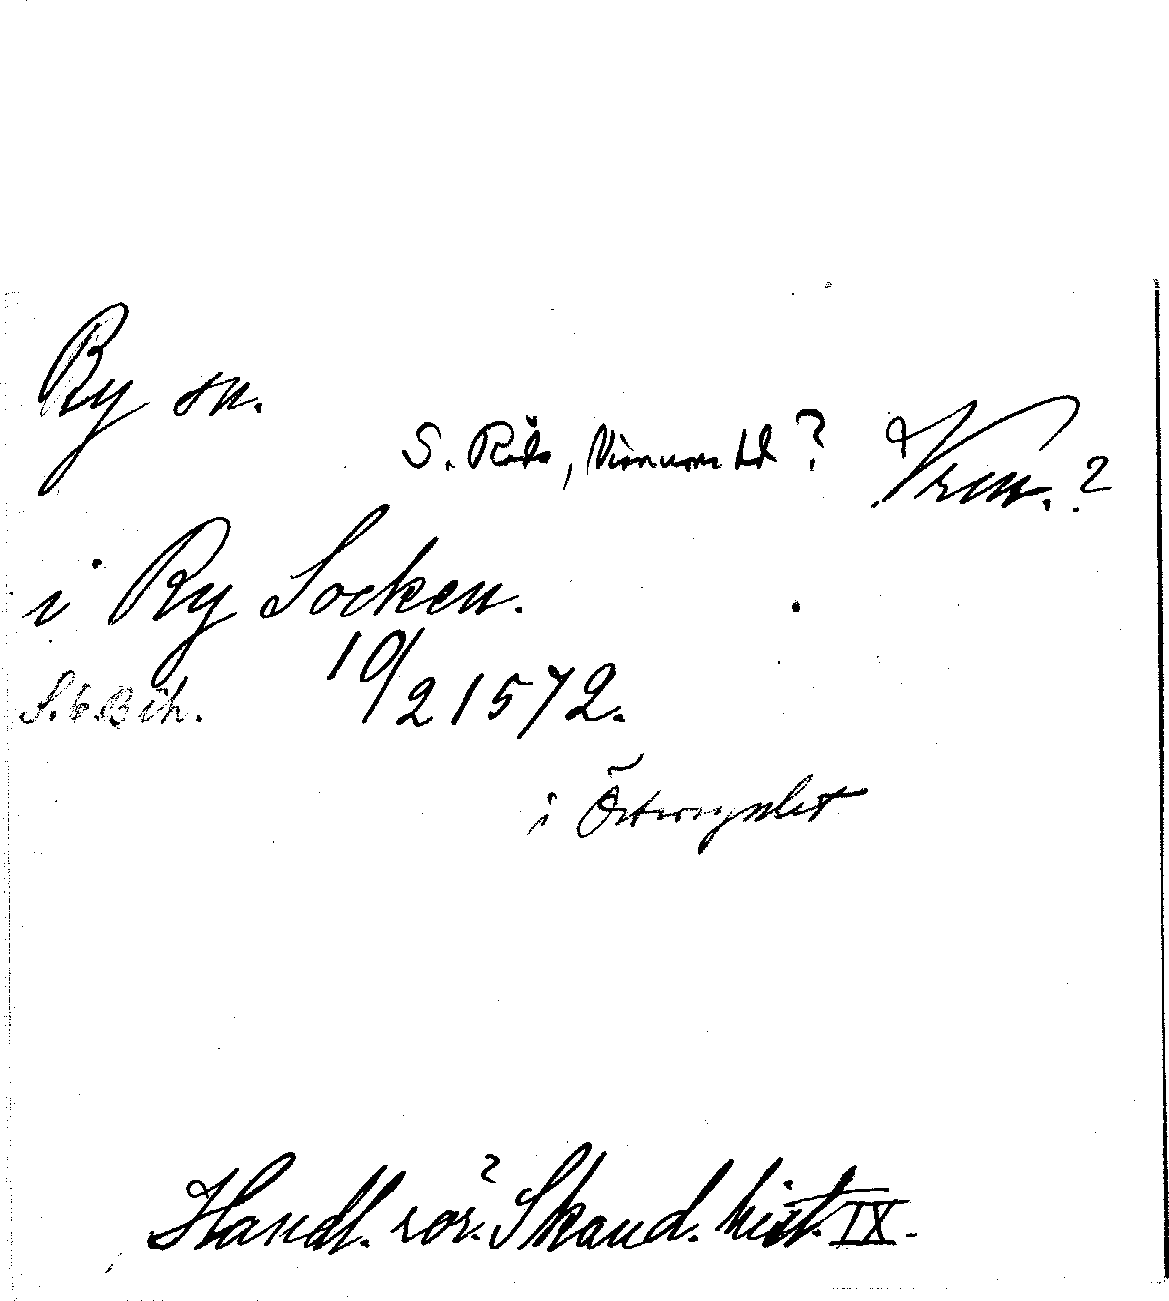 Ry sn.
S. Råda, Visnums hd? Vrm.?
i Ry Socken.
S. 6. Bih. 10/2 1572.
i Östersysslet
Handl. rör. Skand. hist. IX.